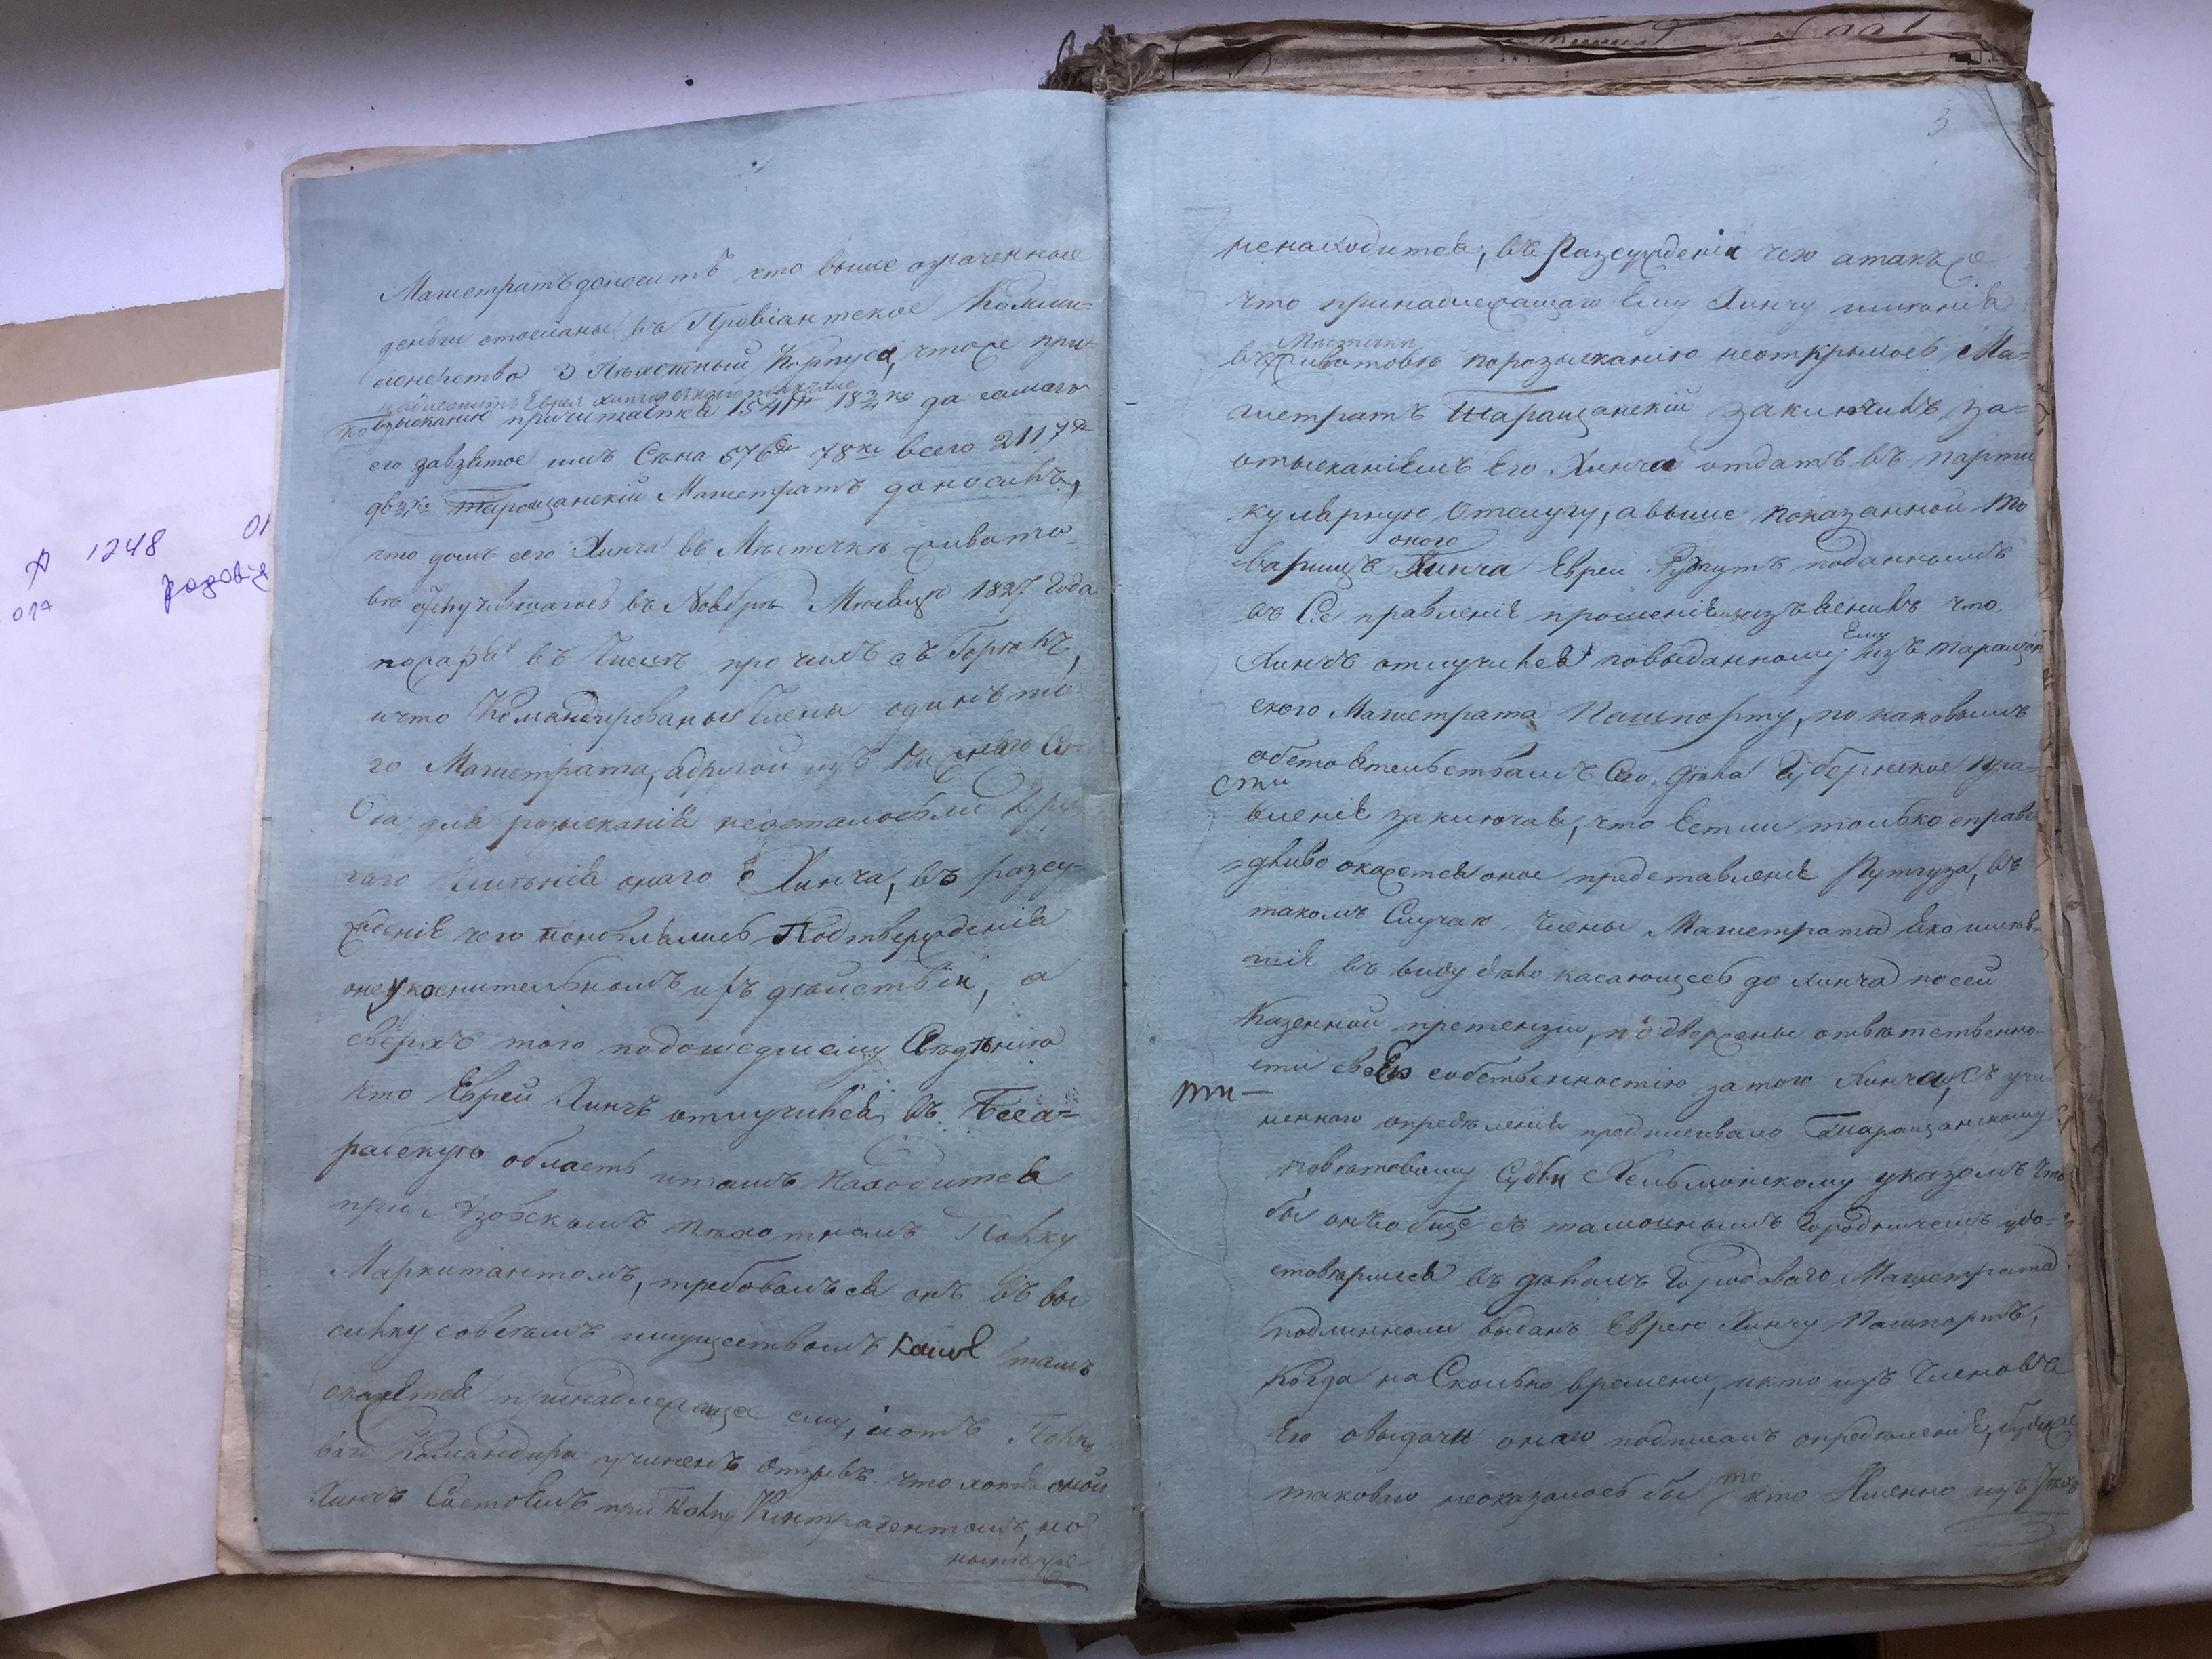 Магистратъ доноситъ что выше означенные
деньги отосланы въ Провіантское Комми-
сіонерство 3 Пѣхотный Корпуса, что же при-
Еврея
ко взысканію причитается 1541 ру 18¾ ко да самаго
его завзятое имъ Сѣна 576 ру 78 ко всего 2117 ру
Таращанскій Магистратъ доносилъ,
что домъ его Хинча въ Мѣстечкѣ Живото-
въ случившагося въ Ноябрѣ Мѣсяцѣ 1827 Года
пожара въ Числѣ прочихъ сгорѣлъ,
и что Командированые Члены одинъ то
го Магистрата, адругой изъ Нижняго Су-
да для розысканія неосталосьли дру
гаго Имѣнія онаго Хинча, въ разсу-
жденіе чего поновлялись Подтвержденія
онеукоснительномъ ихъ дѣйствіи, а
сверхъ того подошедшему Свѣдѣнію
что Еврей Хинчъ отлучился въ Бесса-
рабскую область итамъ находится
при Азовскомъ пѣхотномъ Полку
Маркитантомъ, требовался онъ въ вы
силку совсѣмъ имуществомъ какое тамъ
окажется принадлежащее ему, иотъ Полко
ваго Командира учиненъ отзывъ что хотя оной
Хинчъ Состоялъ при Полку Контрагентомъ, но
нынѣ уже
3
ненаходится, въ Разсужденіи чего атакже
что принадлежащаго Ему Хинчу имѣнія
Мѣстечки
въ Животовѣ порозысканію неоткрылось, Ма-
гистратъ Таращанскій заключилъ за-
отысканіемъ Его Хинча отдать въ парти
кулярную Отслугу, авыше показанной то
оного
варищъ Хинча Еврей поданнымъ
въ Се правленіе прошеніемъ изъяснилъ что
Хинчъ отлучился повыданному Ему изъ Таращан
ского Магистрата Пашпорту, по каковымъ
обстоятельствамъ Сего Дѣла Губернское пра-
сти
вленіе заключая, что Естли только справе
дливо окажется оное представленіе Рутгуза, въ
такомъ Случаѣ Члены Магистрата яко имѣв-
шіе въ виду дѣло касающееся до Хинча посей
Казенной претензіи, подвержены отвѣтственно-
сти своею собственностію затого Хинча, съ учи
ти-
неннаго опредѣленія предписывало Таращанскому
повѣтовому Судьи Хельмонскому указомъ что
бы онъ обще съ тамошнымъ Городничимъ удо-
стовѣрился въ дѣлахъ Городоваго Магистрата
подлиннали выданъ Еврею Хинчу Пашпортъ,
Когда на Сколько времени, икто изъ Членовъ
Его овыдачи онаго подписалъ опредѣленіе, буде же
таковаго неоказалось бы то кто Именно изъ
А 1248